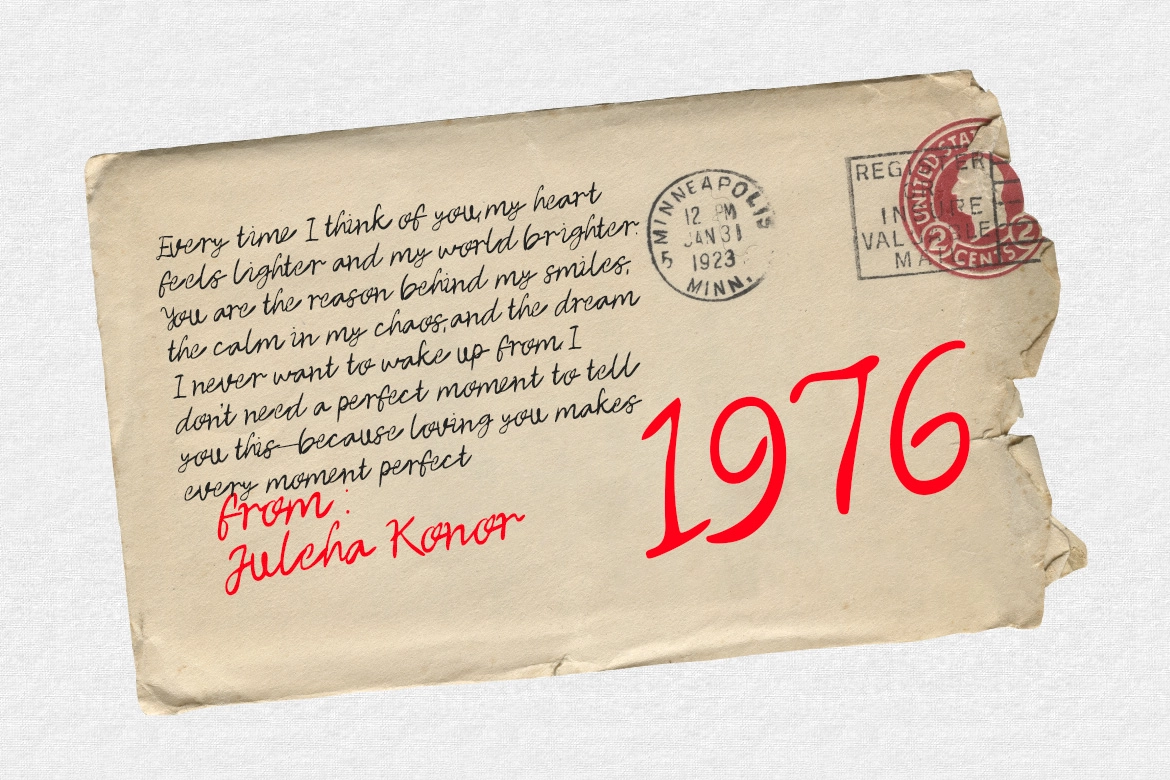 Every time I think of you, my heart
feels lighter and my world brighter.
You are the reason behind my smiles,
the calm in my chaos, and the dream
I never want to wake up from. I
don't need a perfect moment to tell
you this—because loving you makes
every moment perfect
from :
Julcha Konor
1976
MINNEAPOLIS
12 PM
JAN 31
1923
5
MINN.
REGISTER
INSURE
VALUABLE
MAIL
UNITED STATES
2 CENTS 2